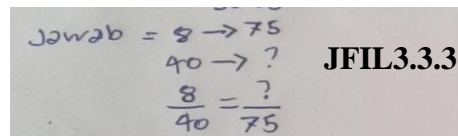 Jawab = 8 → 75
40 → ?
JFIL3.3.3
8/40 = ?/75